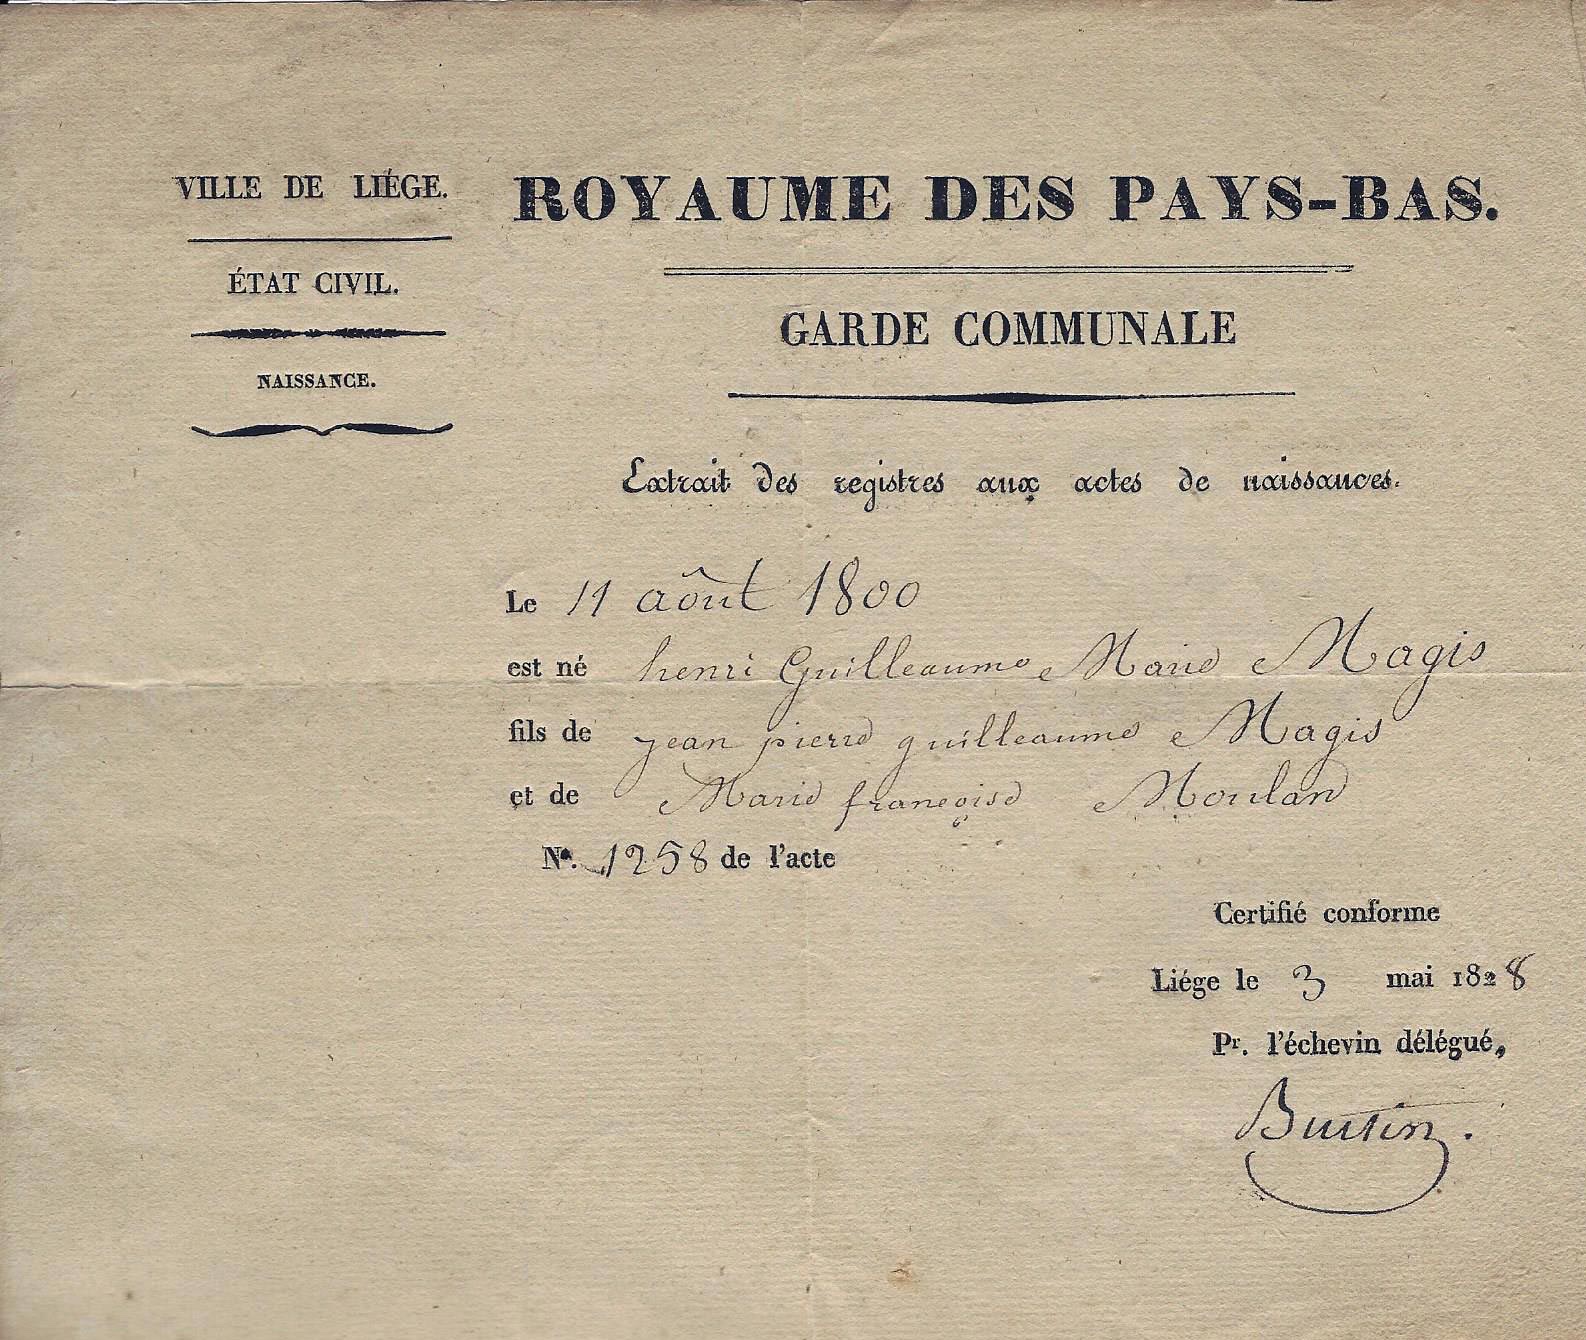 VILLE DE LIÉGE.
ÉTAT CIVIL.
NAISSANCE.
ROYAUME DES PAYS-BAS.
GARDE COMMUNALE
Extrait des registres aux actes de naissances.
Le 11 aôut 1800
est né henri Guilleaume Marie Magis
fils de jean pierre guilleaume Magis
et de Marie françoise Moulan
N°. 1258 de l'acte
Certifié conforme
Liége le 3 mai 1828
Pr. l'échevin délégué,
Bustin.